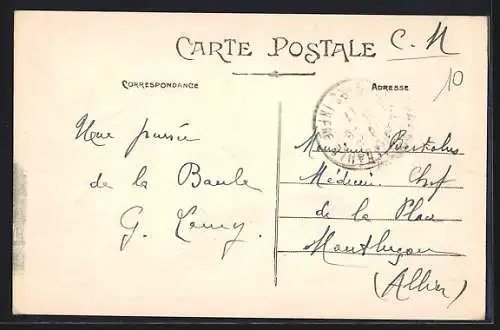 CARTE POSTALE
C. N
10
CORRESPONDANCE
ADRESSE
Une pensée
de la Baule
G.
Monsieur
Médecin Chef
de la Place
Montluçon
(Allier)